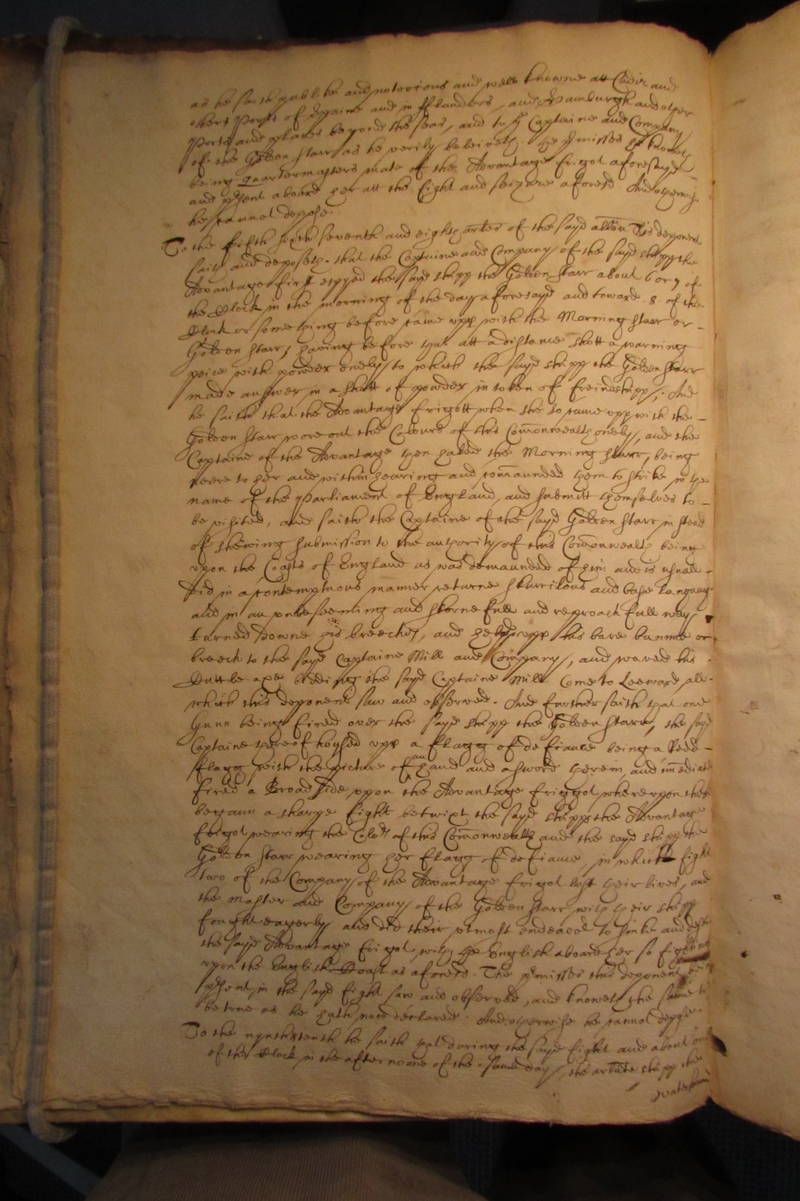 as he saith publike and notorious and well knowne att Cadiz and
other Ports of Spaine and in fflanders, and Hamburgh and other
Ports and places beyond the seas, and to the Captaine and Company
of the Golden Starr as he verily beleiveth, the premisses he knoweth
being Quartermasters mate of the Advantage frigot aforesayd
and present aboard her att the fight and seizure aforesd And otherwise
he cannot depose.
To the fifth sixth seventh and eighth arles of the sayd allon this deponent
saith and deposeth. that the Captaine and Company of the sayd shipp the
Advantage first espyed the sayd shipp the Golden Starr about 6 or 7 of
the Clock in the morning of the day aforesayd and toward 8 of the
Clock or something before came upp with the Morning starr or
Golden Starr, having before that att a distance shott a warning
peice with powder onely, to which the sayd shipp the Golden Starr
made answer in a shott of powder in token of freindshipp, And
he saith that the Advantage frigott when she so came upp with the
Golden Starr wore out the Colours of this Comonwealth onely, and the
Captaine of the Advantage then hayled the Morning starr, being
neere to her and within hearing and comaunded them to strike in the
name of the Parliament of England, and submitt themselves to
be visited, and saith the Captaine of the sayd Golden Starr in stead
of shewing submission to the authority of this Comonwealth being
upon the Coasts of England as was demaunded of him and is usuall
did in a contemptuous manner returne scurrilous and base language
and in an unbeseeming and scornefull and reproachfull way
turned downe his breeches, and held upp his bare bumme or
breech to the sayd Captaine Mill and Company, and waved his
Cuttle axe bidding the sayd Captaine Mill Come to Leeward, all
which this deponent saw and observed. And further saith that one
Gunn being fired over the sayd shipp the Golden Starr, the sayd
Captaine thereof hoysed upp a fflagg of defiance being a Redd
fflagg with the picture of an hand and a sword therein, and imediately
fired a Broad side upon the Advantage frigot whereupon there
begann a sharpe fight betwixt the sayd shipps the Advantage
frigot wearing the Colors of this Comonwealth and the sayd shipp the
Golden Starr wearing her fflagg of defiance, in which fight
two of the Company of the Advantage frigot lost their lives, and
the Master and Company of the Golden Starr with their shipp
fought eagerly and did their utmost endeavor to sinke and
the sayd Advantage frigot with the English aboard her so fighting
upon the English Coast as aforesd. The premisses this deponent being
present in the sayd fight saw and observed, and knoweth the same to
be true as he hath now declared. And otherwise he cannot depose
To the nynth tenth he saith that during the sayd fight and about
of the Clock in the afternoone of the same day, the arlate shipp the